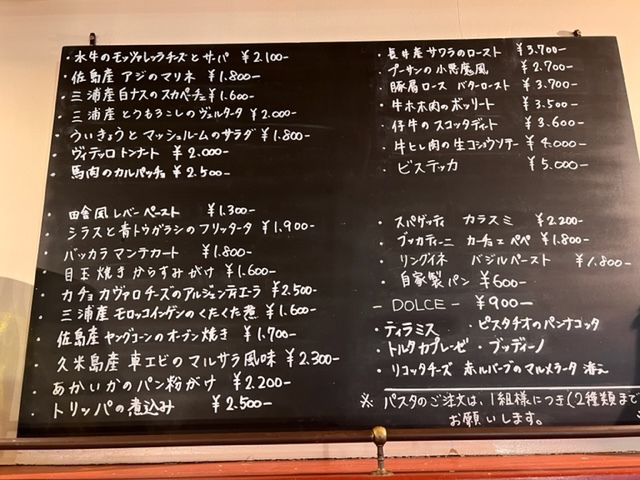 ・水牛のモッツァレッラチーズとサバ ¥2.100-
・佐島産 アジのマリネ ¥1.800-
・三浦産白ナスのスカペーチェ ¥1.600-
・三浦産とうもろこしのヴェルタータ ¥2.000-
・ういきょうと マッシュルームのサラダ ¥1.800-
・ヴィテッロ トンナート ¥2.000-
・馬肉のカルパッチョ ¥2.500-
・田舎風レバーペースト ¥1.300-
・シラスと青トウガラシのフリッタータ ¥1.900-
・バッカラ マンテカート ¥1.800-
・目玉焼きからすみがけ ¥1.600-
・カチョカヴァロチーズのアルジェンティエーラ ¥2.500-
・三浦産モロッコインゲンのくたくた煮 ¥1.600-
・佐島産ヤングコーンのオーブン焼き ¥1.700-
・久米島産 車エビのマルサラ風味 ¥2.300-
・あかいかのパン粉がけ ¥2.200-
・トリッパの煮込み ¥2.500-
・長井産サワラのロースト ¥3.700-
・プーサンの小悪魔風 ¥2.700-
・豚肩ロース バターロースト ¥3.700-
・牛ホホ肉のボッリート ¥3.500-
・仔牛のスコッタディート ¥3.600-
・牛ヒレ肉の生コショウソテー ¥4.000-
・ビステッカ ¥5.000-
・スパゲッティ カラスミ ¥2.200-
・ブッカティーニ カーチョエペペ ¥1.800-
・リングイネ バジルペースト ¥1.800-
・自家製パン ¥600-
- DOLCE - ¥900-
・ティラミス ・ピスタチオのパンナコッタ
・トルタカプレーゼ ・ブッディーノ
・リコッタチーズ 赤ルバーブのマルメラータ 添え
※ パスタのご注文は、1組様につき(2種類まで
お願いします。